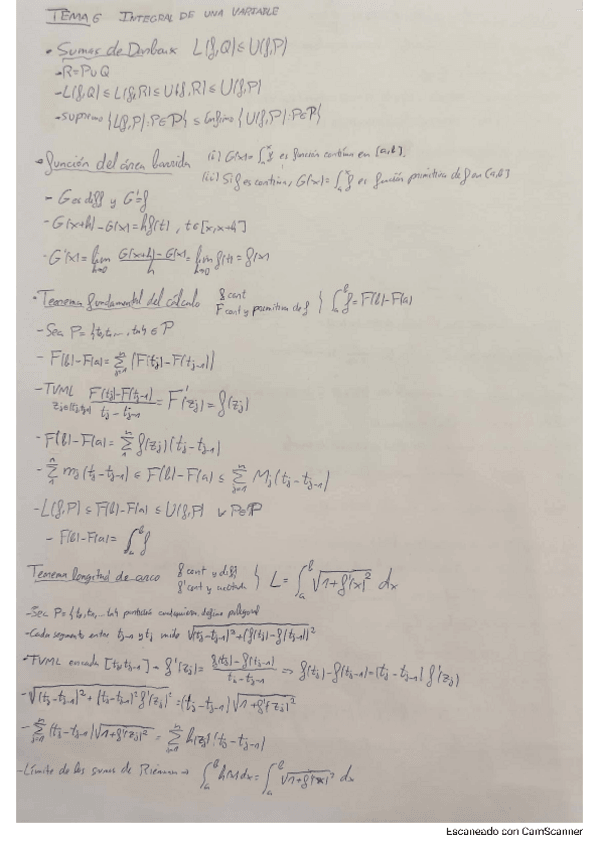 TEMA 6 INTEGRAL DE UNA VARIABLE
• Sumas de Darboux L(f,Q) ≤ U(f,P)
- R = P∪Q
- L(f,Q) ≤ L(f,R) ≤ U(f,R) ≤ U(f,P)
- supremo {L(f,P): P∈P} ≤ ínfimo {U(f,P): P∈P}
• Función del área barrida (i) G(x) = ∫ₐˣ f es función continua en [a,b].
(ii) Si f es continua, G(x) = ∫ₐˣ f es función primitiva de f en [a,b]
- G es diff y G' = f
- G(x+h) - G(x) = h f(t), t∈[x,x+h]
- G'(x) = lim h→0 (G(x+h) - G(x))/h = lim h→0 f(t) = f(x)
• Teorema fundamental del cálculo f cont
F cont y primitiva de f } ∫ₐᵇ f = F(b) - F(a)
- Sea P = {t₀,t₁,..., tₙ} ∈ P
- F(b) - F(a) = Σⁿⱼ₌₁ (F(tⱼ) - F(tⱼ₋₁))
- TVML (F(tⱼ) - F(tⱼ₋₁))/(tⱼ - tⱼ₋₁) = F'(zⱼ) = f(zⱼ)
- F(b) - F(a) = Σⁿ₁ f(zⱼ)(tⱼ - tⱼ₋₁)
- Σⁿ₁ mⱼ(tⱼ - tⱼ₋₁) ≤ F(b) - F(a) ≤ Σⁿⱼ₌₁ Mⱼ(tⱼ - tⱼ₋₁)
- L(f,P) ≤ F(b) - F(a) ≤ U(f,P) ∀ P∈P
- F(b) - F(a) = ∫ₐᵇ f
Teorema longitud de arco f cont y diff
f' cont y acotada } L = ∫ₐᵇ √(1+f'(x)²) dx
- Sea P = {t₀,t₁,... tₙ} partición cualquiera, define poligonal
- Cada segmento entre tⱼ₋₁ y tⱼ mide √((tⱼ - tⱼ₋₁)² + (f(tⱼ) - f(tⱼ₋₁))²)
• TVML en cada [tⱼ,tⱼ₋₁] → f'(zⱼ) = (f(tⱼ) - f(tⱼ₋₁))/(tⱼ - tⱼ₋₁) ⇒ f(tⱼ) - f(tⱼ₋₁) = (tⱼ - tⱼ₋₁) f'(zⱼ)
- √((tⱼ - tⱼ₋₁)² + (tⱼ - tⱼ₋₁)² f'(zⱼ)²) = (tⱼ - tⱼ₋₁) √(1+f'(zⱼ)²)
- Σⁿⱼ₌₁ (tⱼ - tⱼ₋₁) √(1+f'(zⱼ)²) = Σⁿⱼ₌₁ h(zⱼ)(tⱼ - tⱼ₋₁)
- Límite de las sumas de Riemann → ∫ₐᵇ h(x) dx = ∫ₐᵇ √(1+f'(x)²) dx
Escaneado con CamScanner